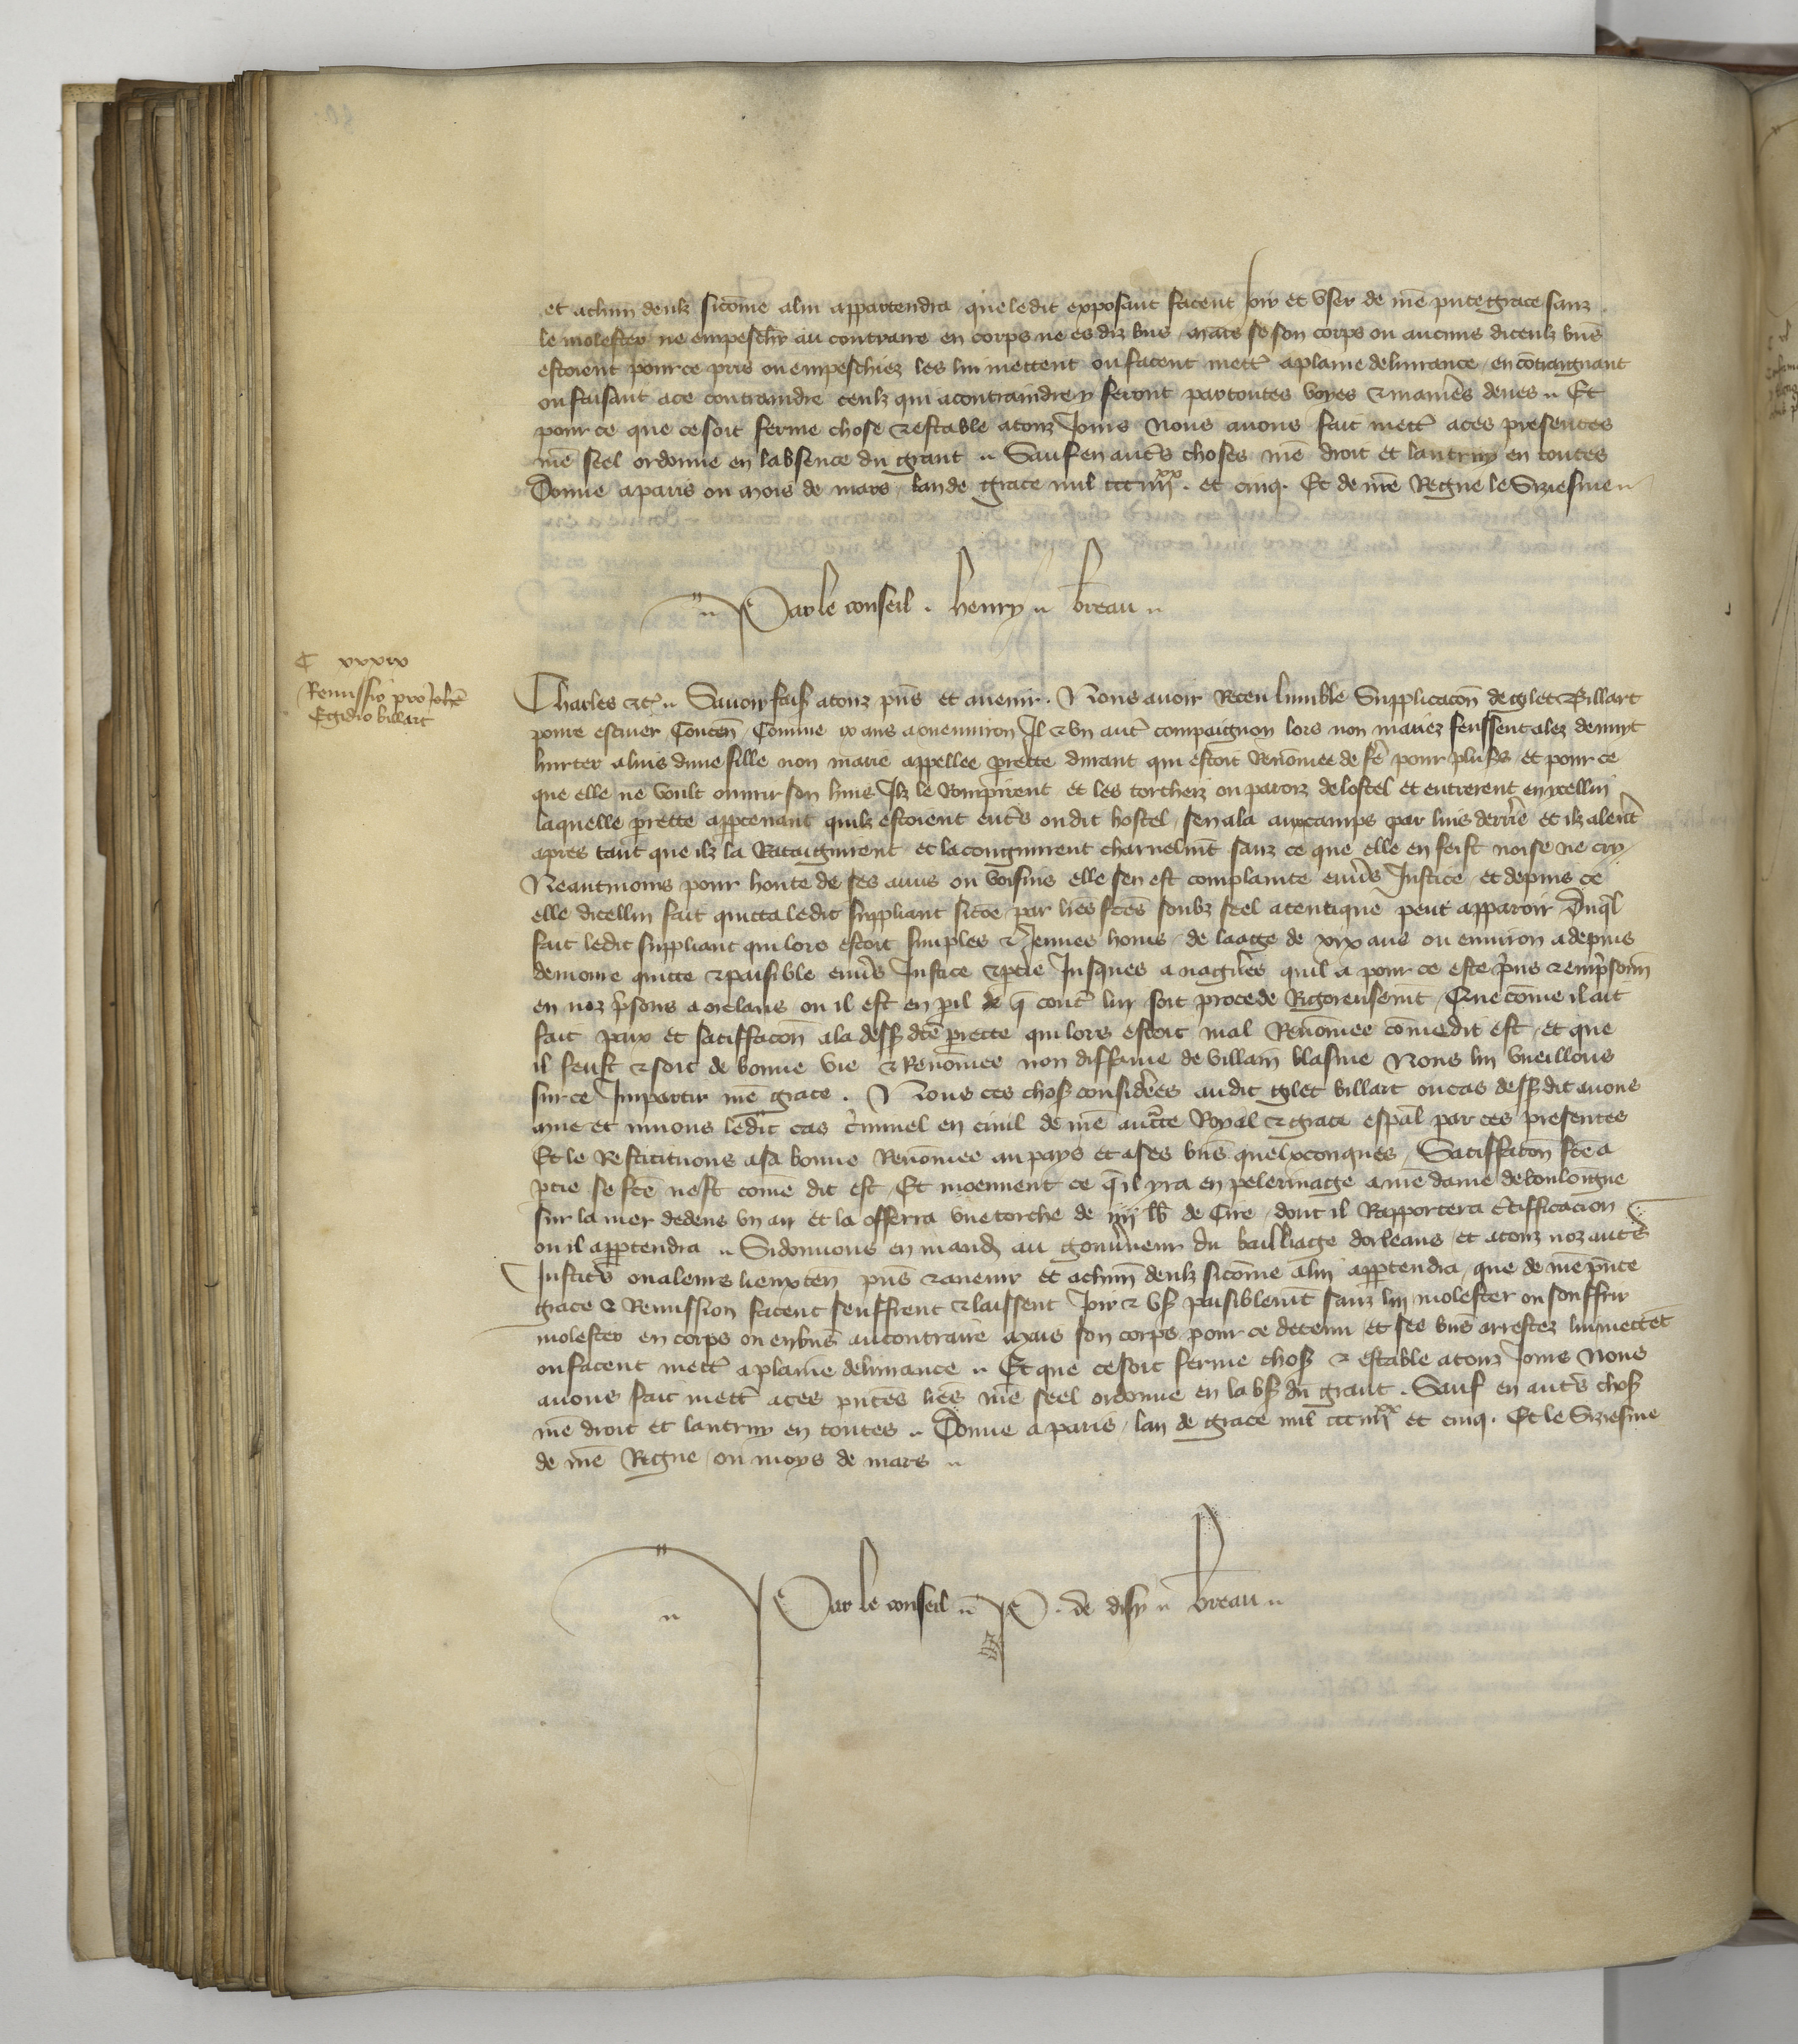 et a chun deulz sicōme a lui appartendra que ledit exposant facent Joir et vser de nr̄e pn̄te grace sanz
le molester ne empeschr̄ au contraire en corps ne es diz biēs mais se son corps ou aucuns diceulz biēs
estoient pour ce pris ou empeschiez les lui mettent ou facent mettr̄ a plaine deliurance en cōtraignant
ou faisant a ce contraindre ceulz qui a contraindre y seront par toutes voyes ⁊ manieres deues Et
pour ce que ce soit ferme chose ⁊ estable a touz Jours Nous auons fait mettr̄ a ces presentes
nr̄e seel ordonne en labsence du grant Sauf en autrs̄ choses nr̄e droit et lautruy en toutes
Donne a paris ou mois de mars lan de grace mil ccc iiij xx. et cinq. Et de nr̄e Regne le Siziesme
Par le conseil . henry breau
xxxix
Remissio pro Johē
Egidio billart
Charles ⁊c Sauoir fais̄ a touz pn̄s et auenir. Nous auoir Receu humble Supplicacōn de gilet Billart
poure escuier Conten̄ Comme ix ans a ou enuiron Il ⁊ vn autr̄ compaignon lors non mariez feussent alez de nuyt
hurter a luis dune fille non marie appellee prette durant qui estoit Renōmee de fe pour plusrs̄ et pour ce
que elle ne voult ouurir son huis Ilz le Rompirent et les torcheiz ou paroiz de lostel et entrerent en ycellui
laquelle prette apperceuant quilz estoient entrs̄ ou dit hostel sen ala aux camps par luis derr̄e et ilz alerēt
apres tant que ilz la Rataignirent et la congnurent charnelmēt sanz ce que elle en feist noise ne cry
Neantmoins pour honte de ses amis ou voisins elle sen est complainte enuers Justice et depuis ce
elle dicellui fait quitta ledit suppliant sicōe par lrēs fcēs soubz seel atentique peut apparoir Duql̄
fait ledit suppliant qui lors estoit simples ⁊ Jeunes homs de laage de xix ans ou enuiron a depuis
demoure quitte ⁊ paisible enuers Justice ⁊ ptie Jusques a nagueres quil a pour ce este pris ⁊ emprisonn̄
en noz prisons a orleans ou il est en peril de q̄ contr̄ luy soit procede Rigoreusemēt Que cōme il ait
fait paix et satiffacōn a la dess̄ dcē prette qui lors estoit mal Renōmee cōme dit est et que
il feust ⁊ soit de bonne vie ⁊ Renōmee non diffame de villain blasme Nous lui vueillons
sur ce Impartir nr̄e grace . Nous ces chos̄ considerees audit gilet billart ou cas dess̄dit auons
mue et muons ledit cas criminel en ciuil de nr̄e auctorite Royal ⁊ grace esp̄al par ces presentes
Et le Restitituons a sa bonne Renōmee au pays et a ses biēs quelxconques Satiffacōn fcē a
ptie se fcē nest comē dit est Et moiennent ce q̄ il yra en pelerinage a nr̄e dame de boulongne
sur la mer dedens vn an et la offerra vne torche de iiij lb̄ de Cire dont il Rapportera certifficacion
ou il appertendra Si donnons en mand̄ au gouuerneur du bailliage dorleans et a touz noz autrs̄
Justicrs̄ ou a leurs lieuxten̄ pn̄s ⁊ auenir et a chun̄ deulz sicōme a lui appertendra que de nr̄e pn̄te
grace ⁊ Remission facent seuffrent ⁊ laissent Joir ⁊ vs̄ paisiblemēt sanz lui molester ou souffrir
molester en corps ou en biēs au contraire mais son corps pour ce detenu et ses biēs arrestez lui mettēt
ou facent mettr̄ a plaine deliurance Et que ce soit ferme chos̄ ⁊ estable a touz Jours Nous
auons fait mettr̄ a ces pn̄tes lrēs nr̄e seel ordonne en labs̄ du grant . Sauf en autrs̄ chos̄
nr̄e droit et lautruy en toutes Donne a paris lan de grace mil ccc iiij xx et cinq . Et le Siziesme
de nr̄e Regne ou moys de mars
Par le conseil P . de disy breau